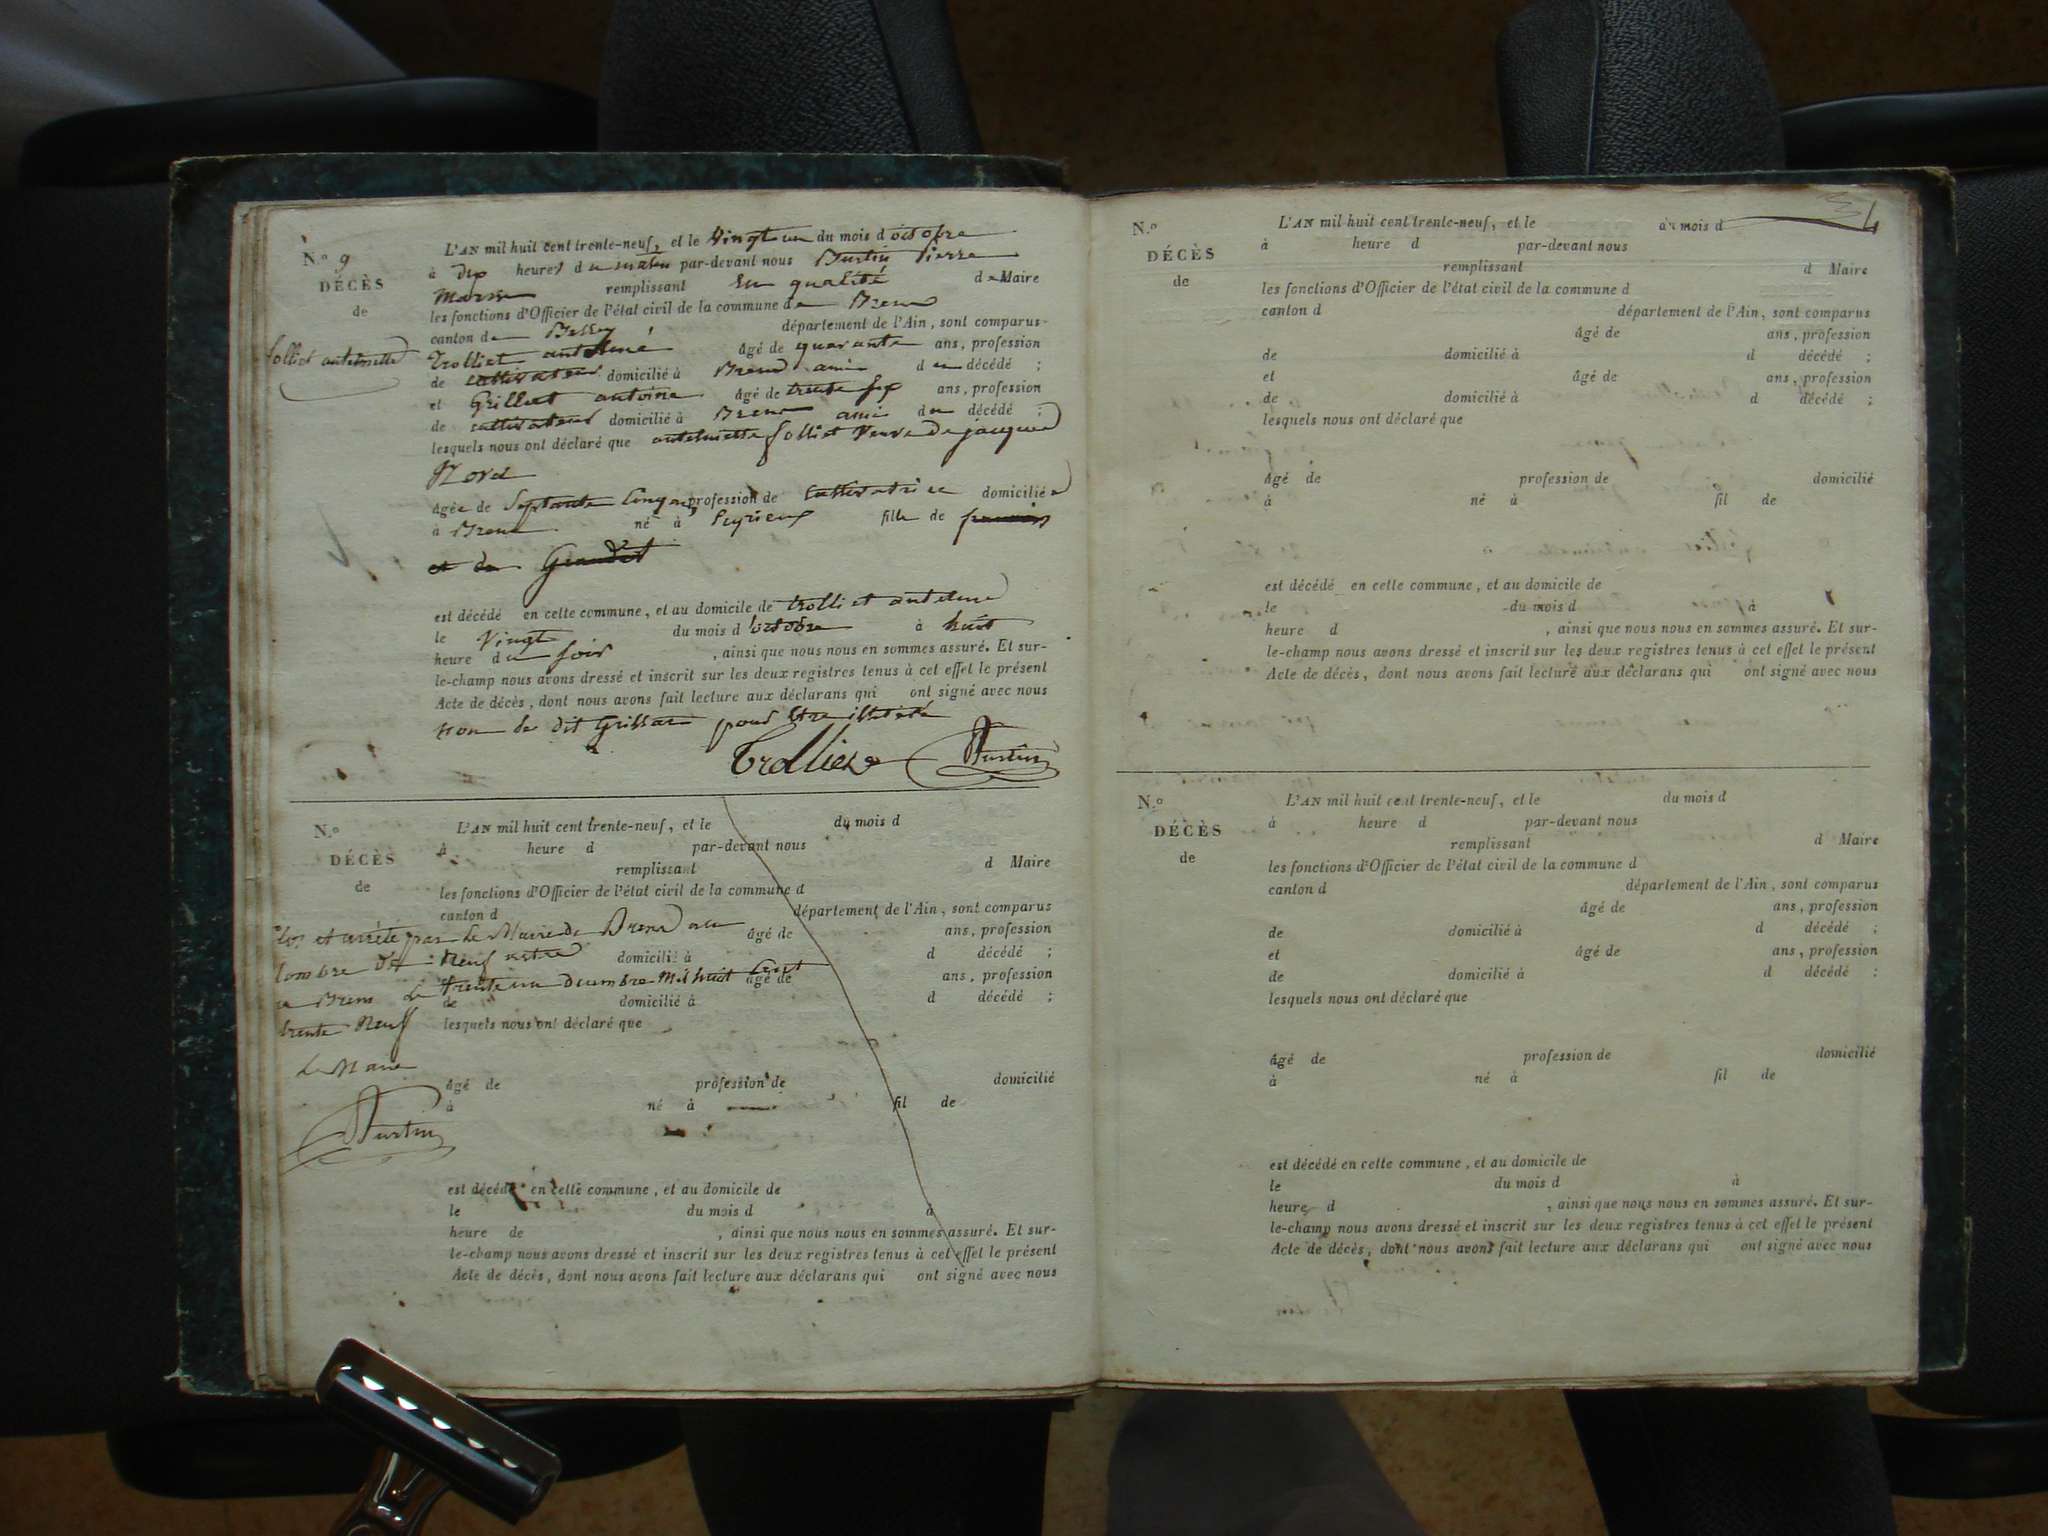 N.º 9
DÉCÈS
de
folliet anthelmette
L'AN mil huit cent trente-neuf, et le vingt un du mois d octobre
à dix heures du matin par-devant nous Burtin Pierre
Marin remplissant en qualité de Maire
les fonctions d'Officier de l'état civil de la commune de Brens
canton de Belley département de l'Ain, sont comparus
Trolliet anthelme âgé de quarante ans, profession
de cultivateur domicilié à Brens ami du décédé ;
et Grillet antoine âgé de trente six ans, profession
de cultivateur domicilié à Brens ami du décédé ;
lesquels nous ont déclaré que anthelmette folliet veuve de jacques
âgée de septante cinq ans profession de cultivatrice domicilié
à Brens né à Peyrieux fille de
est décédé en cette commune, et au domicile de trolliet anthelme
le vingt du mois d'octobre à huit
heure du soir , ainsi que nous nous en sommes assuré. Et sur-
le-champ nous avons dressé et inscrit sur les deux registres tenus à cet effet le présent
Acte de décès, dont nous avons fait lecture aux déclarans qui ont signé avec nous
non le dit Grillet pour être illitéré
Trolliet Burtin
N.º
DÉCÈS
de
L'AN mil huit cent trente-neuf, et le du mois d
à heure d par-devant nous
remplissant d Maire
les fonctions d'Officier de l'état civil de la commune d
canton d département de l'Ain, sont comparus
Clos et arrêté par le Maire de Brens au
âgé de ans, profession
nombre de neuf actes
domicilié à d décédé ;
a Brens le trente un decembre mil huit cent
âgé de ans, profession
de domicilié à d décédé ;
trente neuf
lesquels nous ont déclaré que
Le Maire
Burtin
âgé de profession de domicilié
à né à fil de
est décédé en cette commune, et au domicile de
le du mois d à
heure de , ainsi que nous nous en sommes assuré. Et sur-
le-champ nous avons dressé et inscrit sur les deux registres tenus à cet effet le présent
Acte de décès, dont nous avons fait lecture aux déclarans qui ont signé avec nous
N.º
DÉCÈS
de
L'AN mil huit cent trente-neuf, et le du mois d
à heure d par-devant nous
remplissant d Maire
les fonctions d'Officier de l'état civil de la commune d
canton d département de l'Ain, sont comparus
âgé de ans, profession
de domicilié à d décédé ;
et âgé de ans, profession
de domicilié à d décédé ;
lesquels nous ont déclaré que
âgé de profession de domicilié
à né à fil de
est décédé en cette commune, et au domicile de
le du mois d à
heure d , ainsi que nous nous en sommes assuré. Et sur-
le-champ nous avons dressé et inscrit sur les deux registres tenus à cet effet le présent
Acte de décès, dont nous avons fait lecture aux déclarans qui ont signé avec nous
N.º
DÉCÈS
de
L'AN mil huit cent trente-neuf, et le du mois d
à heure d par-devant nous
remplissant d Maire
les fonctions d'Officier de l'état civil de la commune d
canton d département de l'Ain, sont comparus
âgé de ans, profession
de domicilié à d décédé ;
et âgé de ans, profession
de domicilié à d décédé ;
lesquels nous ont déclaré que
âgé de profession de domicilié
à né à fil de
est décédé en cette commune, et au domicile de
le du mois d à
heure d , ainsi que nous nous en sommes assuré. Et sur-
le-champ nous avons dressé et inscrit sur les deux registres tenus à cet effet le présent
Acte de décès, dont nous avons fait lecture aux déclarans qui ont signé avec nous